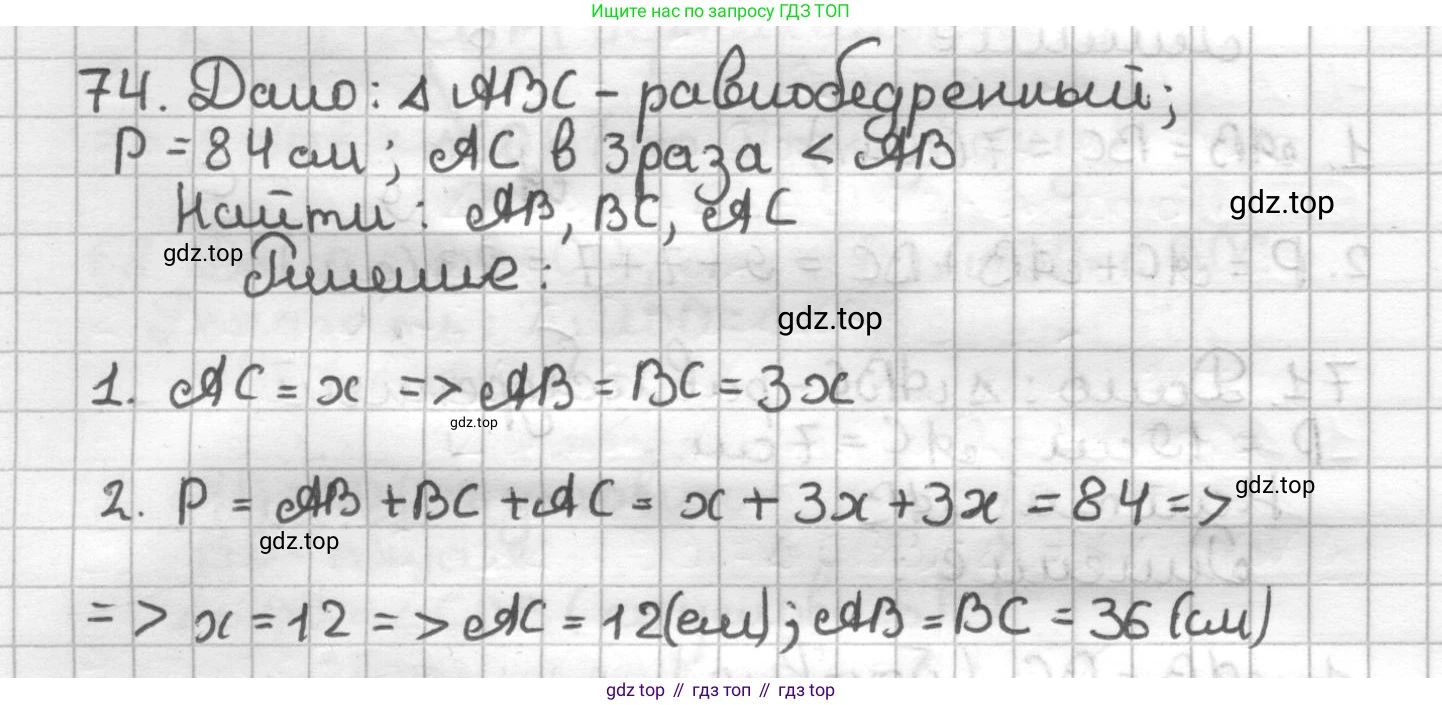 Ищите нас по запросу ГДЗ ТОП
74. Дано: Δ ABC - равнобедренный;
P = 84 см; AC в 3 раза < AB
Найти: AB, BC, AC
gdz.top
gdz.top
Решение:
gdz.top
1. AC = x => AB = BC = 3x
gdz.top
2. P = AB + BC + AC = x + 3x + 3x = 84 =>
gdz.top
gdz.top
=> x = 12 => AC = 12 (см); AB = BC = 36 (см)
gdz top // гдз топ // гдз top